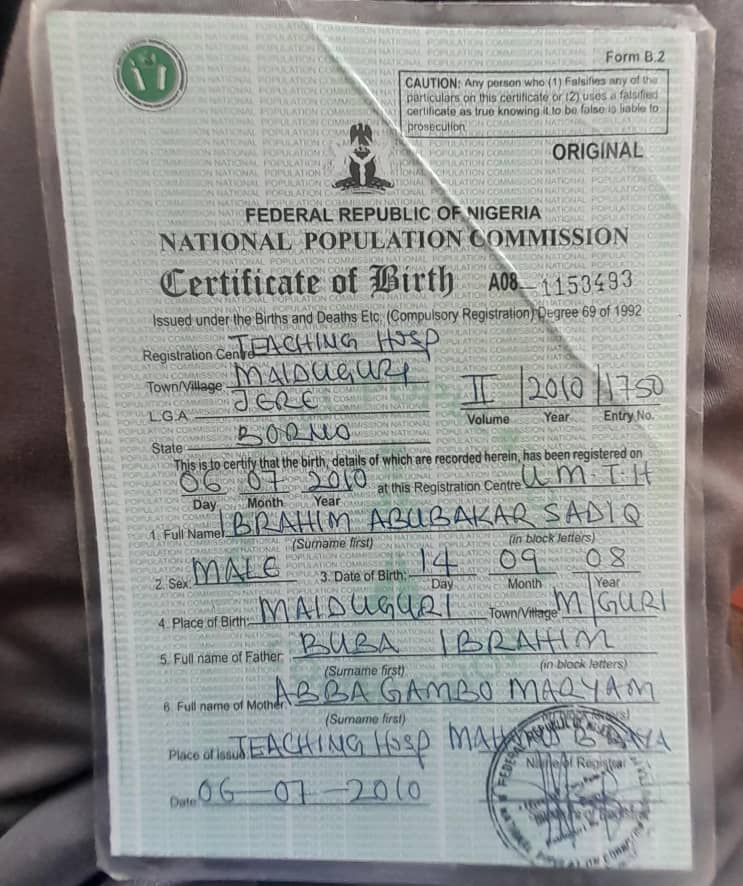 Form B.2
CAUTION: Any person who (1) Falsifies any of the
particulars on this certificate or (2) uses a falsified
certificate as true knowing it to be false is liable to
prosecution
ORIGINAL
FEDERAL REPUBLIC OF NIGERIA
NATIONAL POPULATION COMMISSION
Certificate of Birth A08 1153493
Issued under the Births and Deaths Etc. (Compulsory Registration) Degree 69 of 1992
Registration Centre TEACHING HOSP
Town/Village MAIDUGURI
L.G.A JERE
II 2010 1750
Volume Year Entry No.
State BORNO
This is to certify that the birth, details of which are recorded herein, has been registered on
06 07 2010 at this Registration Centre U M T H
Day Month Year
1. Full Name IBRAHIM ABUBAKAR SADIQ
(Surname first) (in block letters)
2. Sex: MALE 3. Date of Birth: 14 09 08
Day Month Year
4. Place of Birth: MAIDUGURI Town/Village M/GURI
5. Full name of Father BUBA IBRAHIM
(Surname first) (in block letters)
6. Full name of Mother ABBA GAMBO MARYAM
(Surname first)
Place of issue TEACHING HOSP
Name of Registrar
Date 06-07-2010